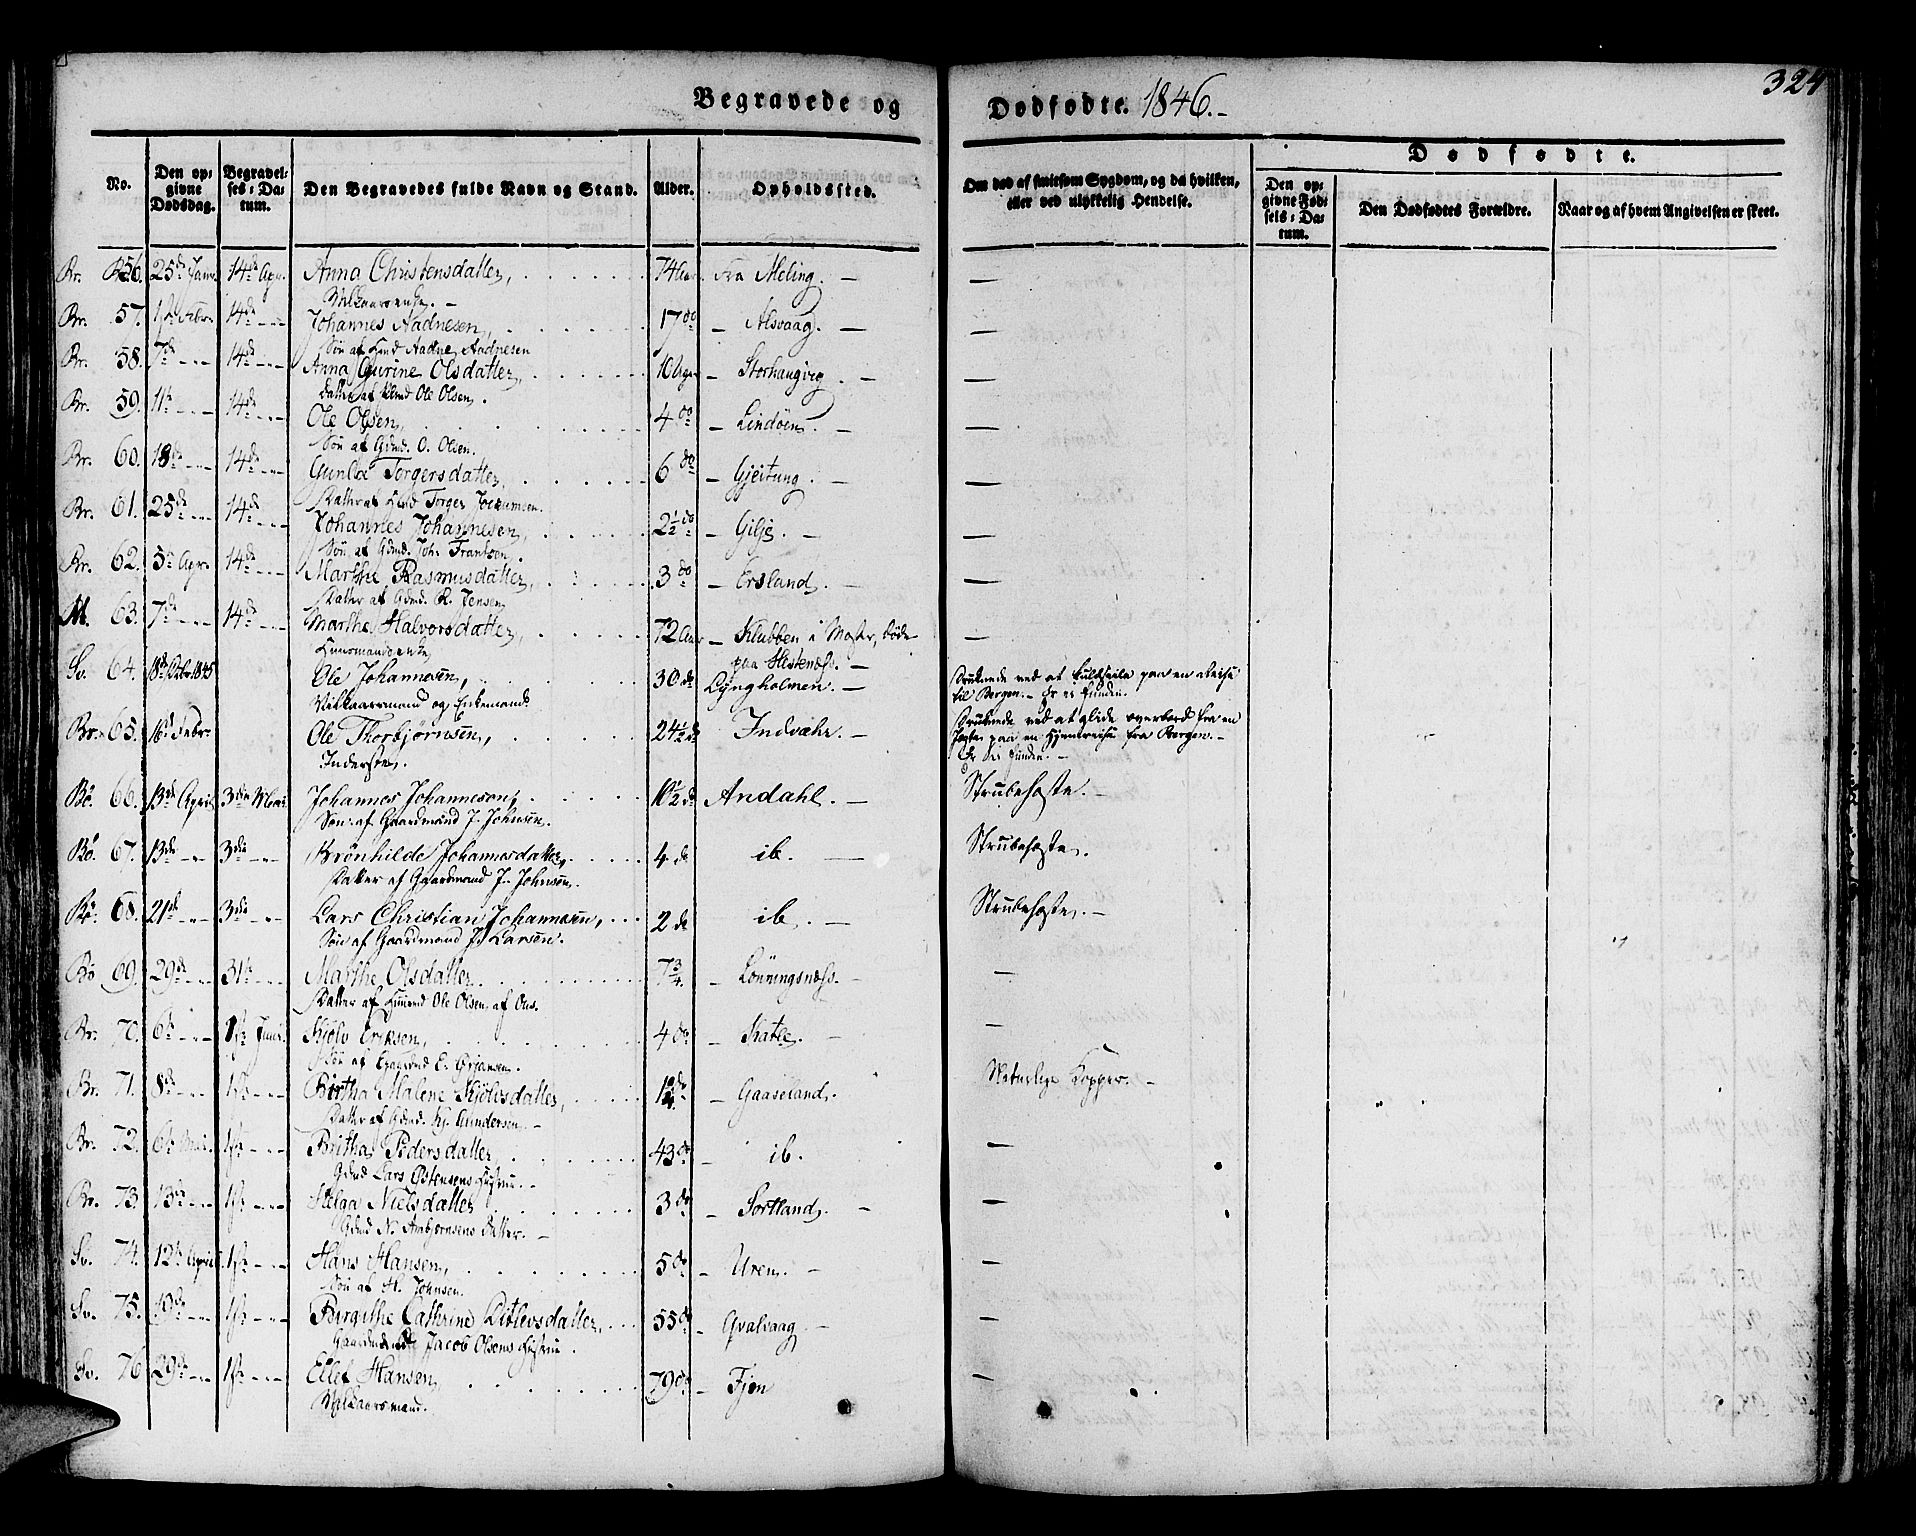 324
Begravede og Dødfødte. 1846.-
Dødfødte.
No.
Den opgivne Dødsdag.
Begravelses-Datum.
Den Begravedes fulde Navn og Stand.
Alder.
Opholdssted.
Om død af smitsom Sygdom, og da hvilken, eller ved ulykkelig Hendelse.
Den opgivne Fødsels-Datum.
Den Dødfødtes Forældre.
Naar og af hvem Angivelsen er skeet.
Br. 56. 25de Janr. 14de Apr. Anna Christensdatter, 74 Aar fra Meling. — —
Br. 57. 1ste Febr. 14de Johannes Aadnesen, 17 do – Alsvaag. — —
Søn af Aadne Aadnesen
Br. 58. 7de 14de Anna Gurine Olsdatter, 10 – Storhaugvig. — —
Datter af Ole Olsen.
Br. 59. 11te 14de Ole Olsen, 4 do – Lindøen. — —
Søn af Gdmd. O. Olsen.
Br. 60. 18de 14de Torgersdatter, 6 do – Gjeitung. — —
Datter af Torger Jocumsen.
Br. 61. 25de 14de Johannes Johannesen, 2½ do – Gilje. — —
Søn af Gdmd. Joh. Frantsen.
Br. 62. 5te Apr. 14de Marthe Rasmusdatter, 3 do – Ersland. — —
Datter af Gdmd. R. Jensen
M. 63. 7de 14de Marthe Halvorsdatter, 72 Aar – Klubben i Moster, døde paa Hestenæss. — —
Huusmandsenke
Sv. 64. 18de 1845 Ole Johannesen, 30 do Lyngholmen. — Druknede ved at kuldseile paa en Reise til Bergen. – Er ei funden.
Vilkaarsmand og Enkemand
Br. 65. 16de Febr. Ole Thorbjørnsen, 24½ do Indvæhr. — Druknede ved at glide overbord fra en Jagt paa en Hjemreise fra Bergen. – Er ei funden. –
Inderste.
Bö. 66. 13de April 3die Mai Johannes Johannesen, 10½ do Andahl. — Strubehoste. –
Søn af Gaardmand J. Johnsen.
Bö. 67. 13de 3die Brønhilde Johannesdatter, 4 do ib. — Strubehoste.
Datter af Gaardmand J. Johnsen.
Bö. 68. 21de 3die Lars Christian Johannesen, 2 do ib. — Strubehoste. –
Søn af Gaardmand J. Larsen.
Bö 69. 29de 31te Marthe Olsdatter. 7¾ – Lønningsnæss. — —
Datter af Ole Olsen
Br. 70. 6te 1ste Juni Skjöly Eriksen, 4 do – Katle. — —
Søn af E. Ørjansen.
Br. 71. 8de 1ste Birtha Malene Skjölysdatter, – Gaaseland. Naturlige Kopper. –
Datter af Gdmd. Sj. Gundersen. –
Br. 72. 6te Mai. 1ste Britha Pedersdatter, 43 do – ib. —
Gdmd Lars Østensens Hustrue. –
Br. 73. 13de 1ste Helga Nielsdatter 3 do – Sortland. — —
Gdmd N. Ambjørnsens Datter. –
Sv. 74. 12te April 1ste Hans Hansen, 5 do – Uren. – —
Søn af H. Johnsen.
Sv. 75. 19de 1ste Birgithe Cathrine Ditlevsdatter, 55 do – Qvalvaag – —
Gaardmand Jacob Olsens Hustrue.
Sv. 76 29de 1ste Ellef Hansen, 79 do – Fjon —
Vilkaarsmand.